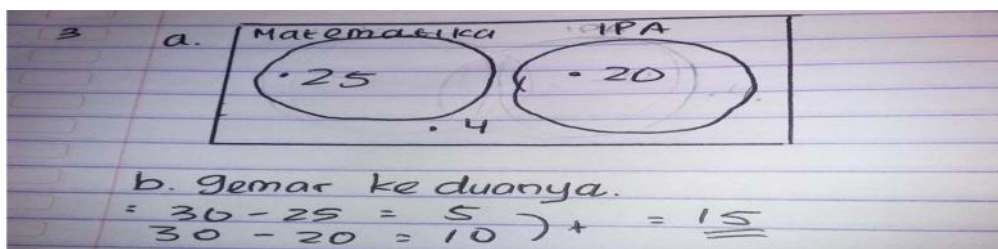 3 a. Matematika IPA
• 25 • 20
• 4
b. gemar ke duanya.
= 30 - 25 = 5
30 - 20 = 10 ) + = 15